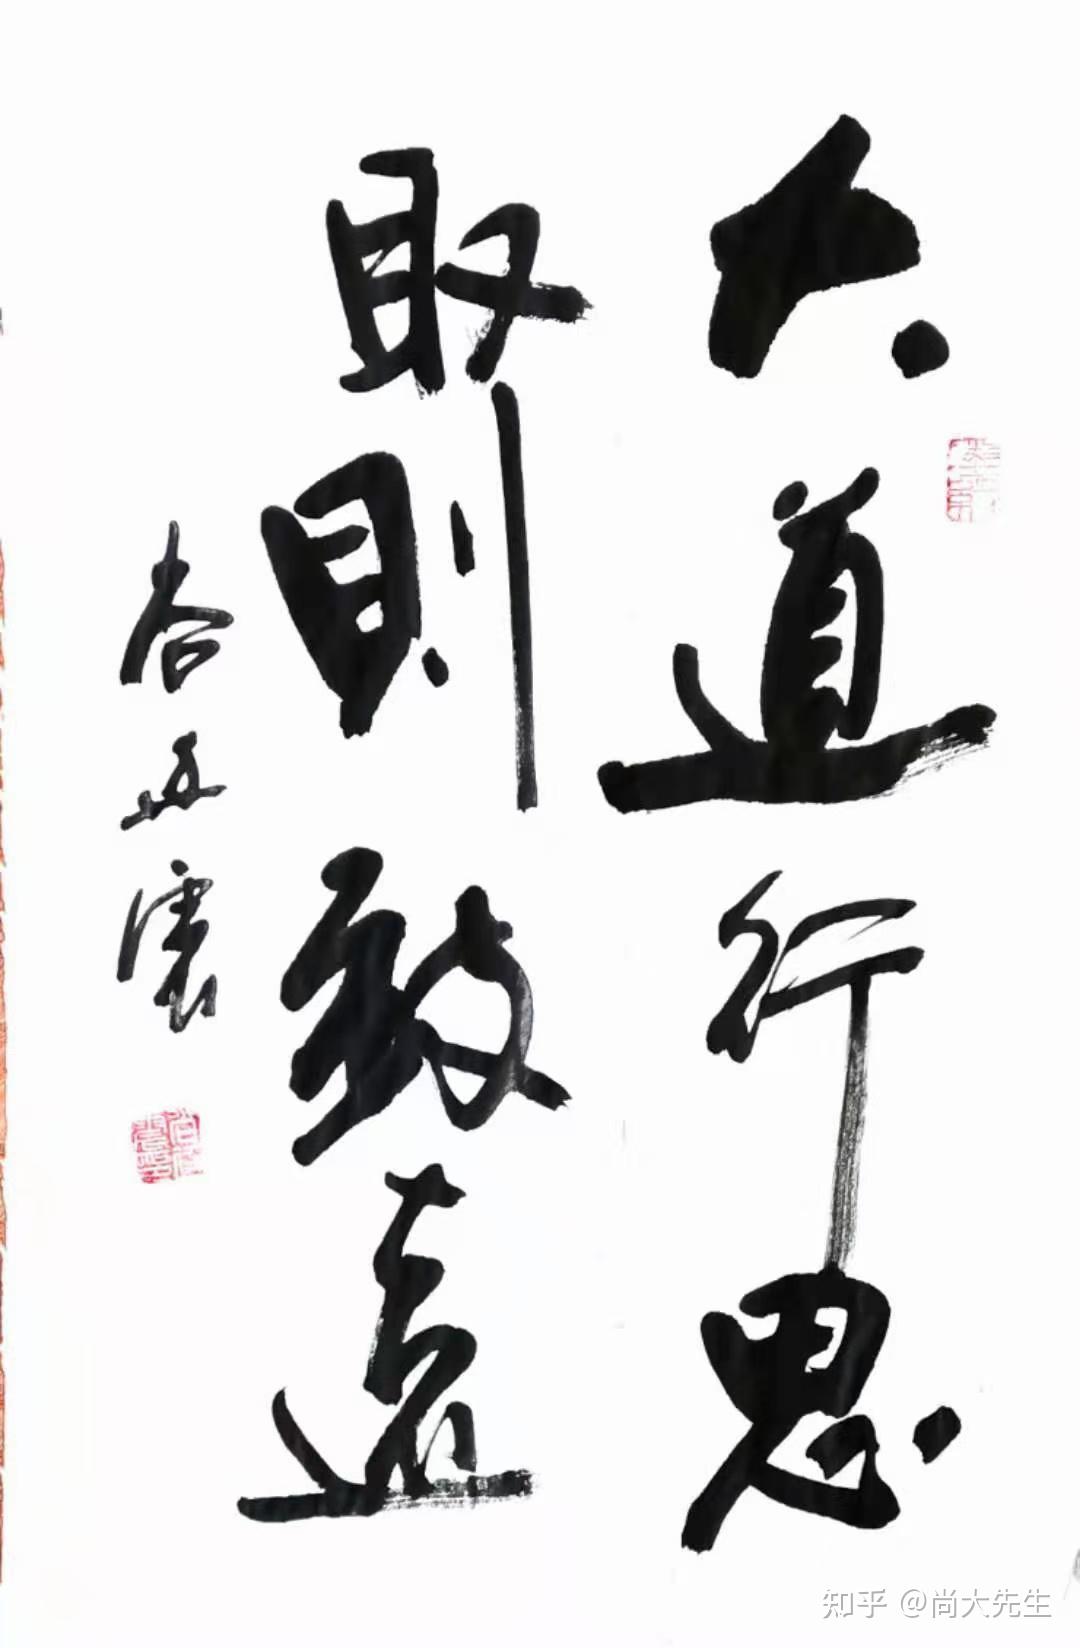 大道行思
取則致遠
知乎 @尚大先生